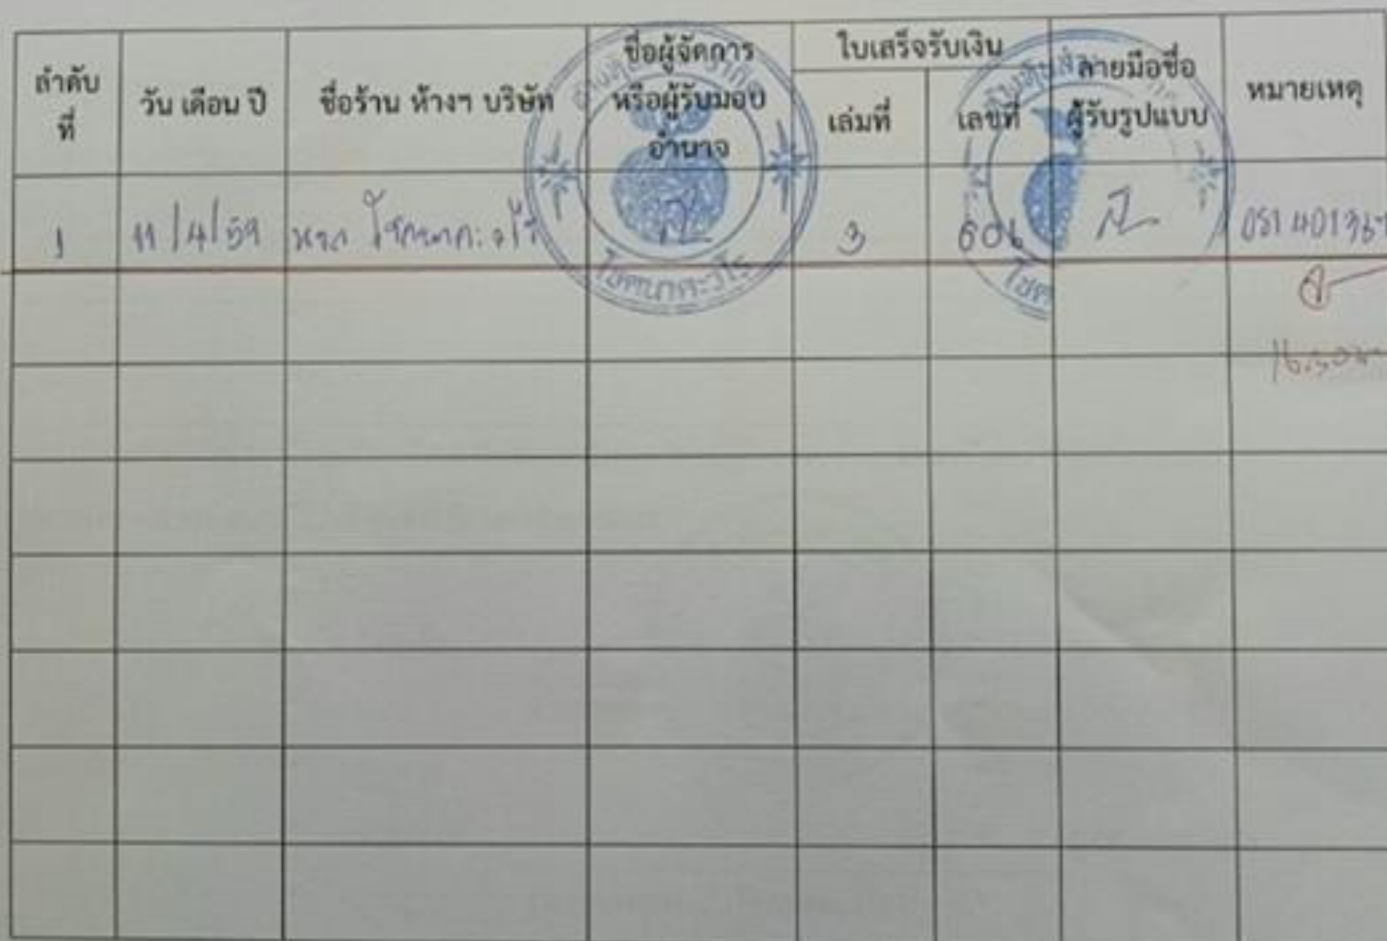 ลำดับ
ที่
วัน เดือน ปี
ชื่อร้าน ห้างฯ บริษัท
ชื่อผู้จัดการ
หรือผู้รับมอบ
อำนาจ
ใบเสร็จรับเงิน
เล่มที่
เลขที่
ลายมือชื่อ
ผู้รับรูปแบบ
หมายเหตุ
1
11/4/59
หจก โชคนาคะวโร
3
606
โชคนาคะวโร
โชค